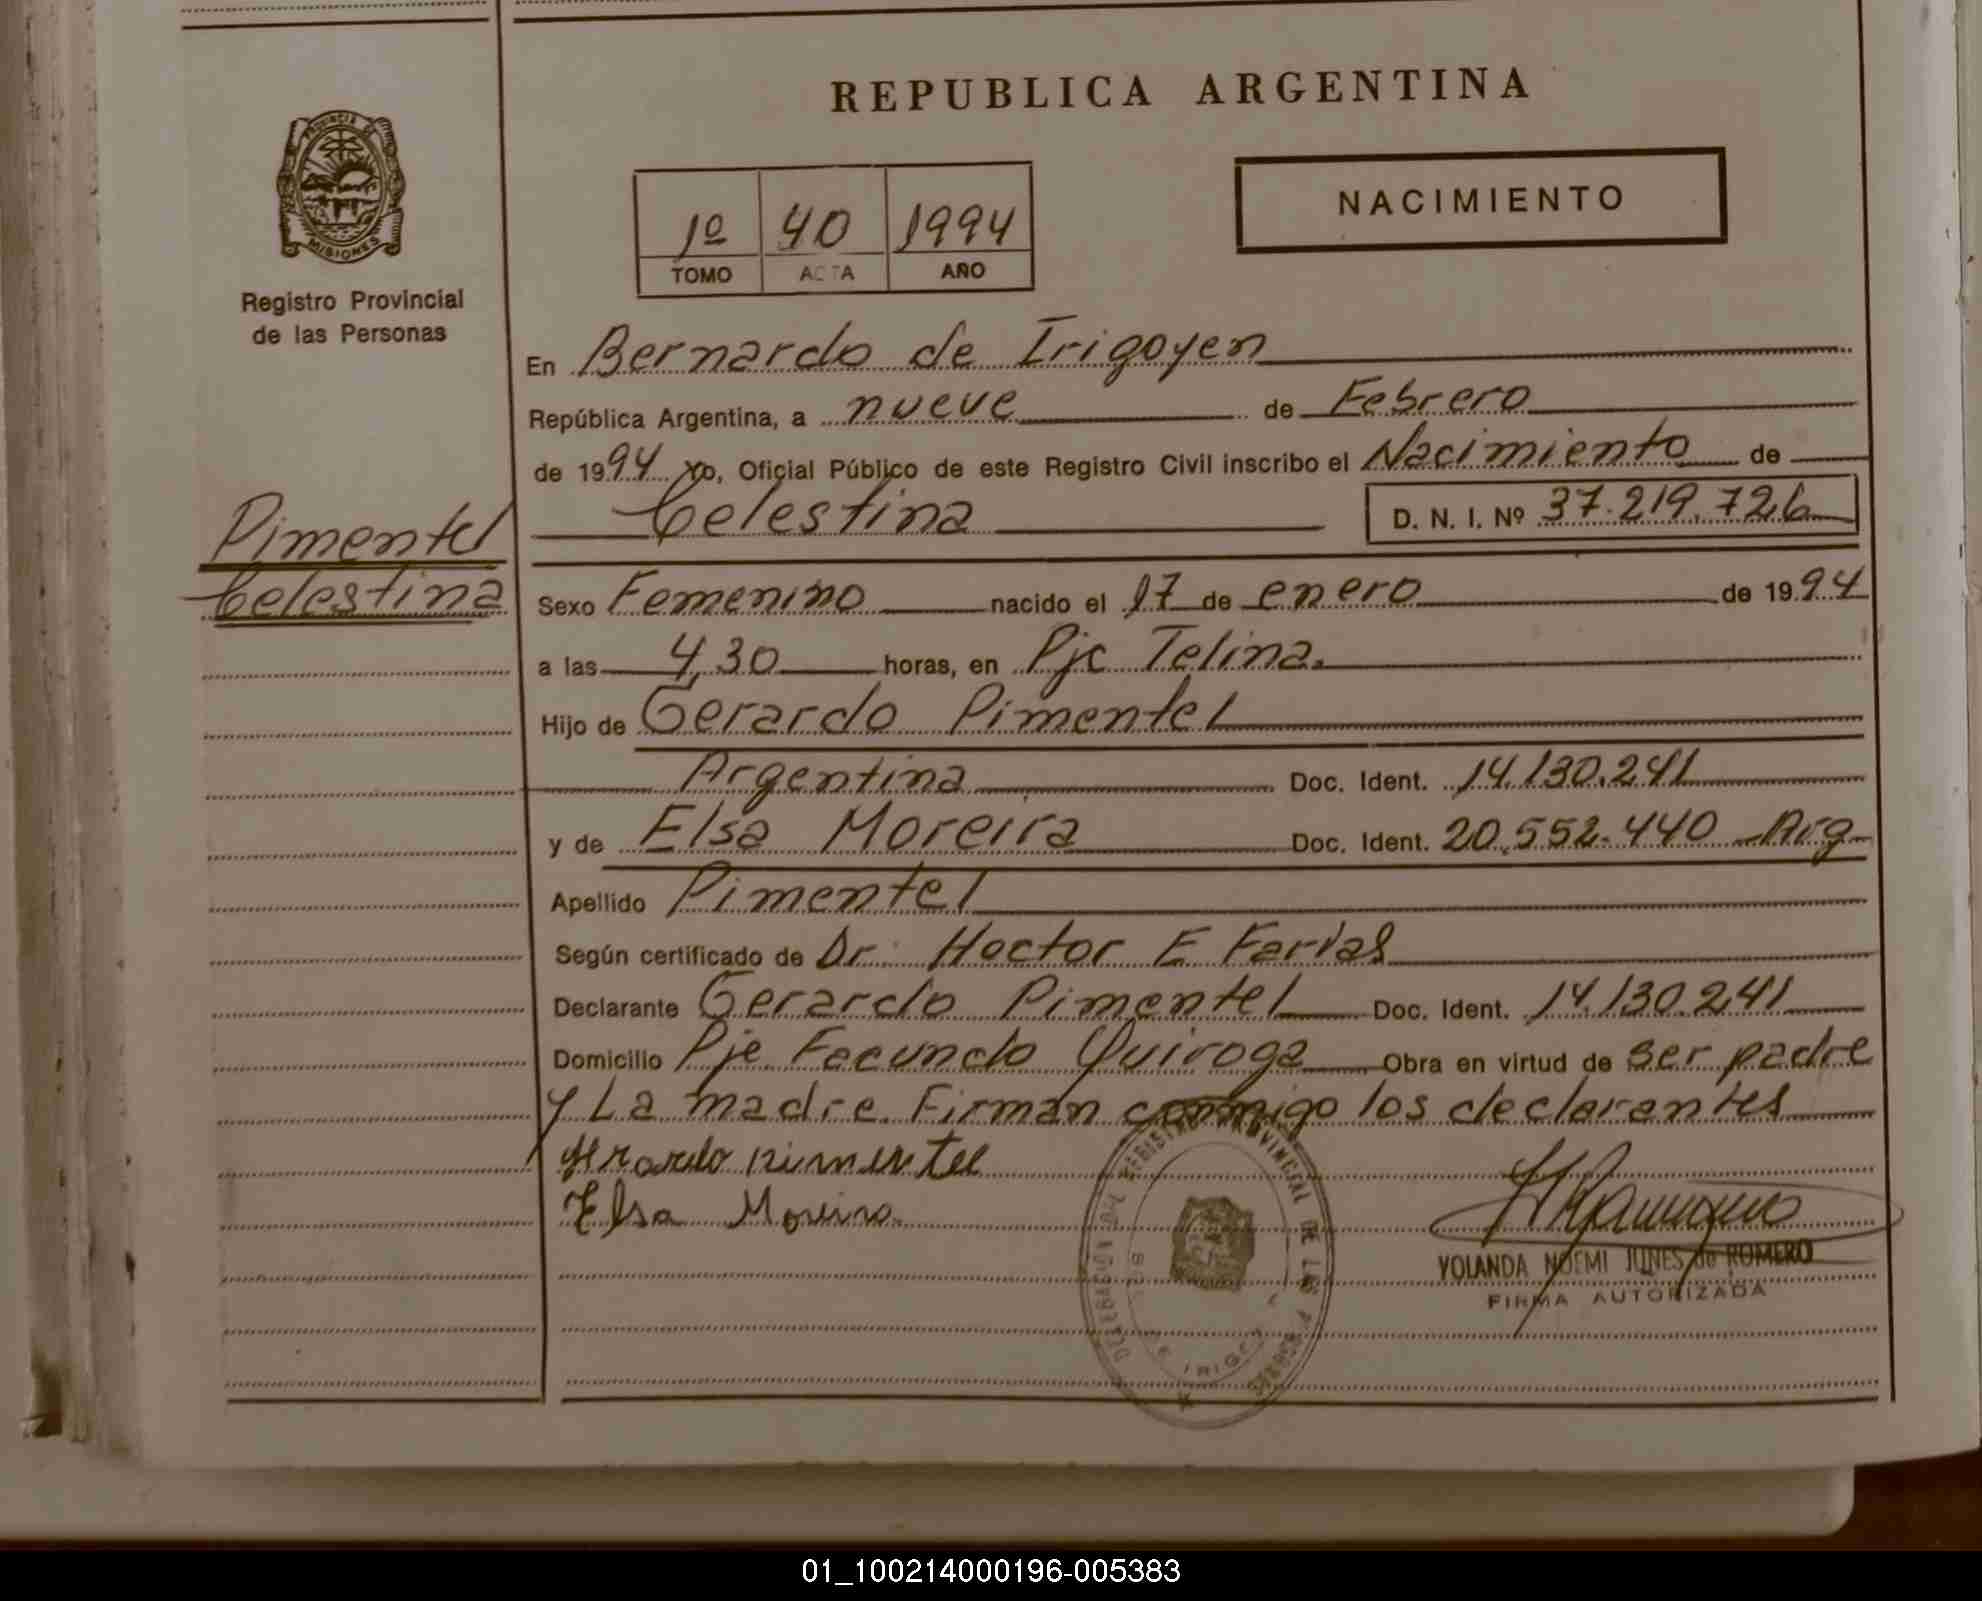 REPUBLICA ARGENTINA
PROVINCIA DE
MISIONES
Registro Provincial
de las Personas
1º 40 1994
TOMO ACTA AÑO
NACIMIENTO
En Bernardo de Irigoyen
República Argentina, a nueve de Febrero
de 1994 Yo, Oficial Público de este Registro Civil inscribo el Nacimiento de
Celestina D. N. I. Nº 37.219.726
Pimentel
Celestina
Sexo Femenino nacido el 17 de enero de 1994
a las 4,30 horas, en Pje Telina.
Hijo de Gerardo Pimentel
Argentina Doc. Ident. 14.130.241
y de Elsa Moreira Doc. Ident. 20.552.440 Arg
Apellido Pimentel
Según certificado de Dr. Hector E Farias
Declarante Gerardo Pimentel Doc. Ident. 14.130.241
Domicilio Pje Facundo Quiroga Obra en virtud de ser padre
y La madre. Firman conmigo los declarantes
Gerardo Pimentel
Elsa Moreira
REGISTRO PROVINCIAL DE LAS PERSONAS
YOLANDA NOEMI JUNES de ROMERO
FIRMA AUTORIZADA
01_100214000196-005383